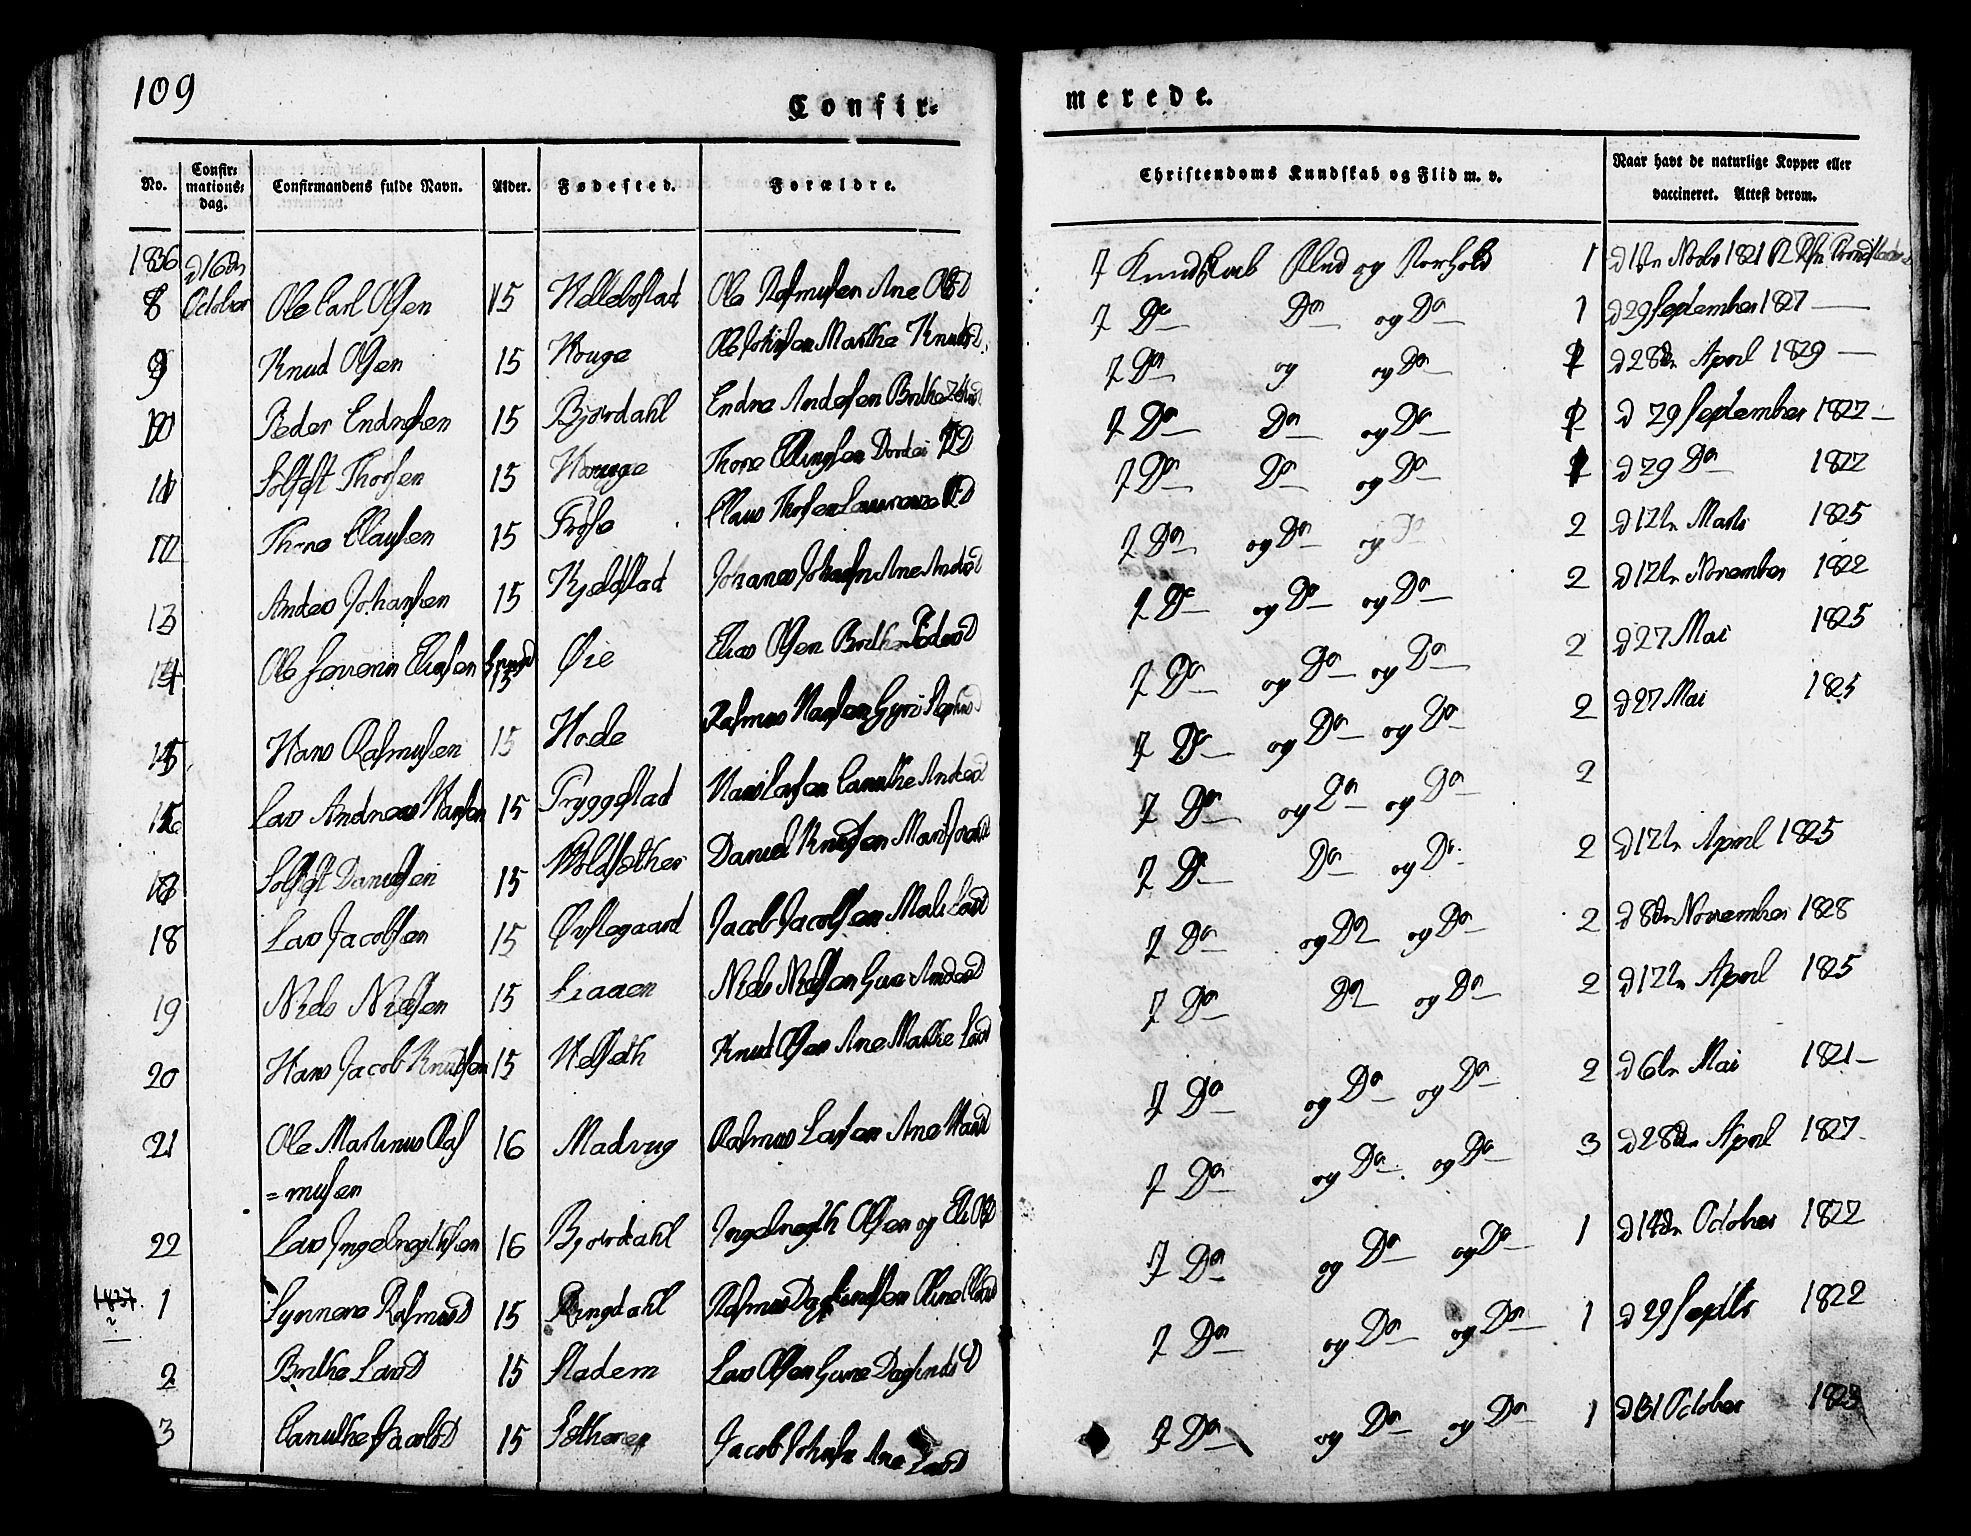 109
Confir-
merede.
No.
Confir-
mations-
dag.
Confirmandens fulde Navn.
Alder.
Fødested.
Forældre.
Christendoms Kundskab og Flid m. v.
Naar havt de naturlige Kopper eller
vaccineret. Attest derom.
1836 d 16de
October
8 Ole Carl Olsen 15 Hellebostad Ole Rasmusen Ane Olsd
7 Kundskab Flid og Forhold 1 d 1ste 1821
9 Knud Olsen 15 Houge Ole Marthe Knudsd
7 Do Do og Do 1 d 29 September 1827
10 Peder Endresen 15 Bjørdahl Endre Andersen Brithe
7 Do og og Do d 28de April 1829
11 Solfest Thorsen 15 Houge Thore Ellingsen Dordei
7 Do Do og Do d 29 September 1827
12 Thore Clausen 15 Claus Thorsen Laurenze
7 Do Do og Do d 29 Do 1827
13 Anders Johansen 15 Kjeldstad Johanes Ane Andersd
7 Do og Do og Do 2 d 12te Marts 1825
14 Ole Severin Eliasen 15 Øie Elias Olsen Brithe Pedersd
7 Do og Do og Do 2 d 12te November 1822
15 Hans Rasmusen 15 Hode Rasmus Hansen Gyri
7 Do og Do og Do 2 d 27 Mai 1825
16 Lars Andreas Hansen 15 Tryggestad Hans Larsen Canuthe Andersd
7 Do og Do og Do 2 d 27 Mai 1825
Solfest Danielsen 15 Daniel Knudsen
7 Do og Do og Do 2
18 Lars Jacobsen 15 Øvstegaard Jacob Jacobsen Mali Larsd
7 Do Do og Do 2 d 12te April 1825
19 Niels Nielsen 15 Liaaen Niels Nielsen Andersd
7 Do og Do og Do 2 d 8de November 1828
20 Hans Jacob Knudsen 15 Velseth Knud Olsen Ane Marthe Larsd
7 Do Do og Do 2 d 12te April 1825
21 Ole Martinus Ras 16 Rasmus Larsen Ane Hansd
=musen
7 Do og Do og Do 2 d 6te Mai 1821
22 Lars Ingebregthsen 16 Bjørdahl Ingebregth Olsen og Eli Olsd
7 Do og Do og Do 3 d 28de April 1827
1837. 1 Synneve Rasmusd 15 Ringdahl Rasmus Dagfindsen
7 Do og Do og Do 1 d 14de October 1822
2 Brithe Larsd 15 Stadem Lars Olsen Dagfindsd
7 Do og Do og Do 1 d 29 Septbr 1822
3 Canuthe Jacobsd 15 Jacob Ane Larsd
7 Do og Do og Do 1 d 31 October 1823